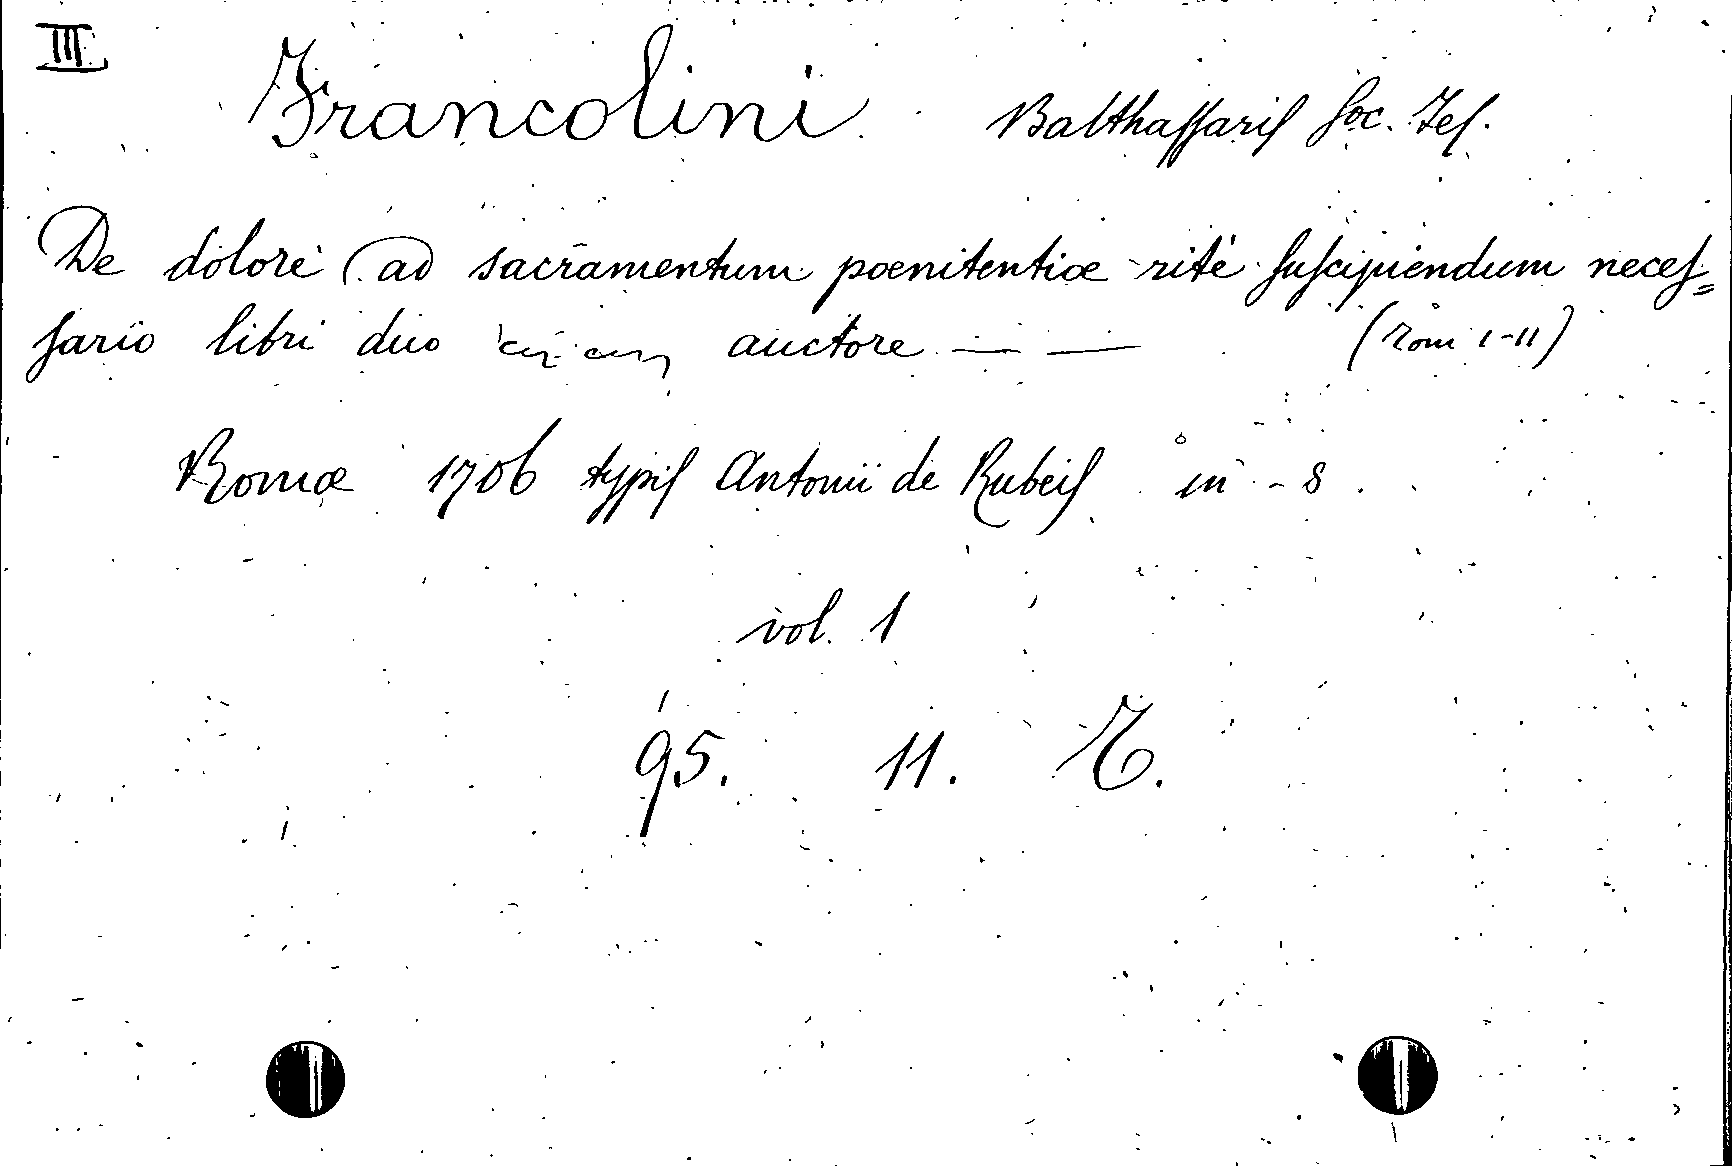 III
Francolini Balthaſſariſ Soc. Jeſ.
De dolore ad sacramentum poenitentiæ rité suſcipiendum neceſ=
sario libri duo auctore — — (Tom I-II)
Romæ 1706 typiſ Antonii de Rubeiſ in - 8°
vol. 1
95. 11. T.